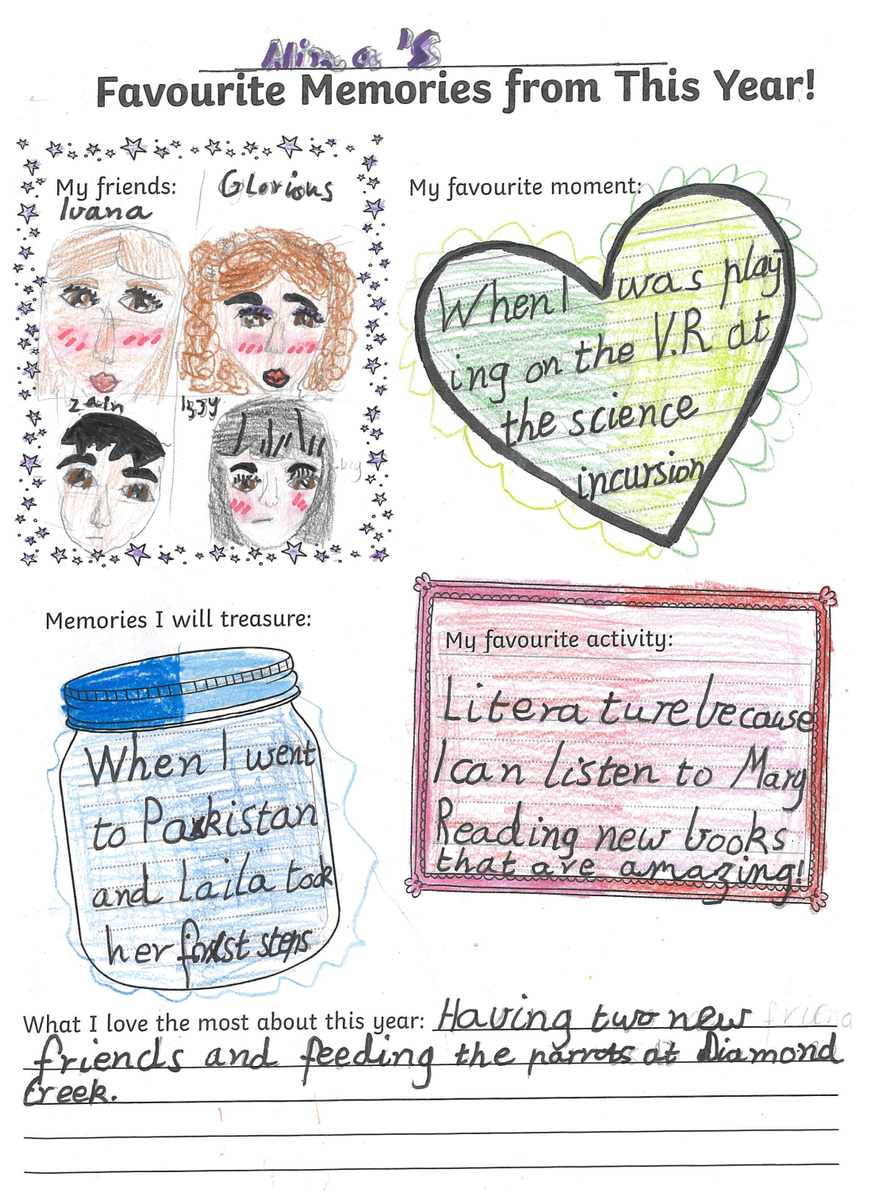 's
Favourite Memories from This Year!
My friends:
Ivana
Glorious
Zain
Izzy
My favourite moment:
When I was play
ing on the V.R at
the science
incursion
Memories I will treasure:
When I went
to Pakistan
and Laila took
her first steps
My favourite activity:
Literature because
I can listen to Mary
Reading new books
that are amazing!
What I love the most about this year: Having two new
friends and feeding the parrots at Diamond
Creek.